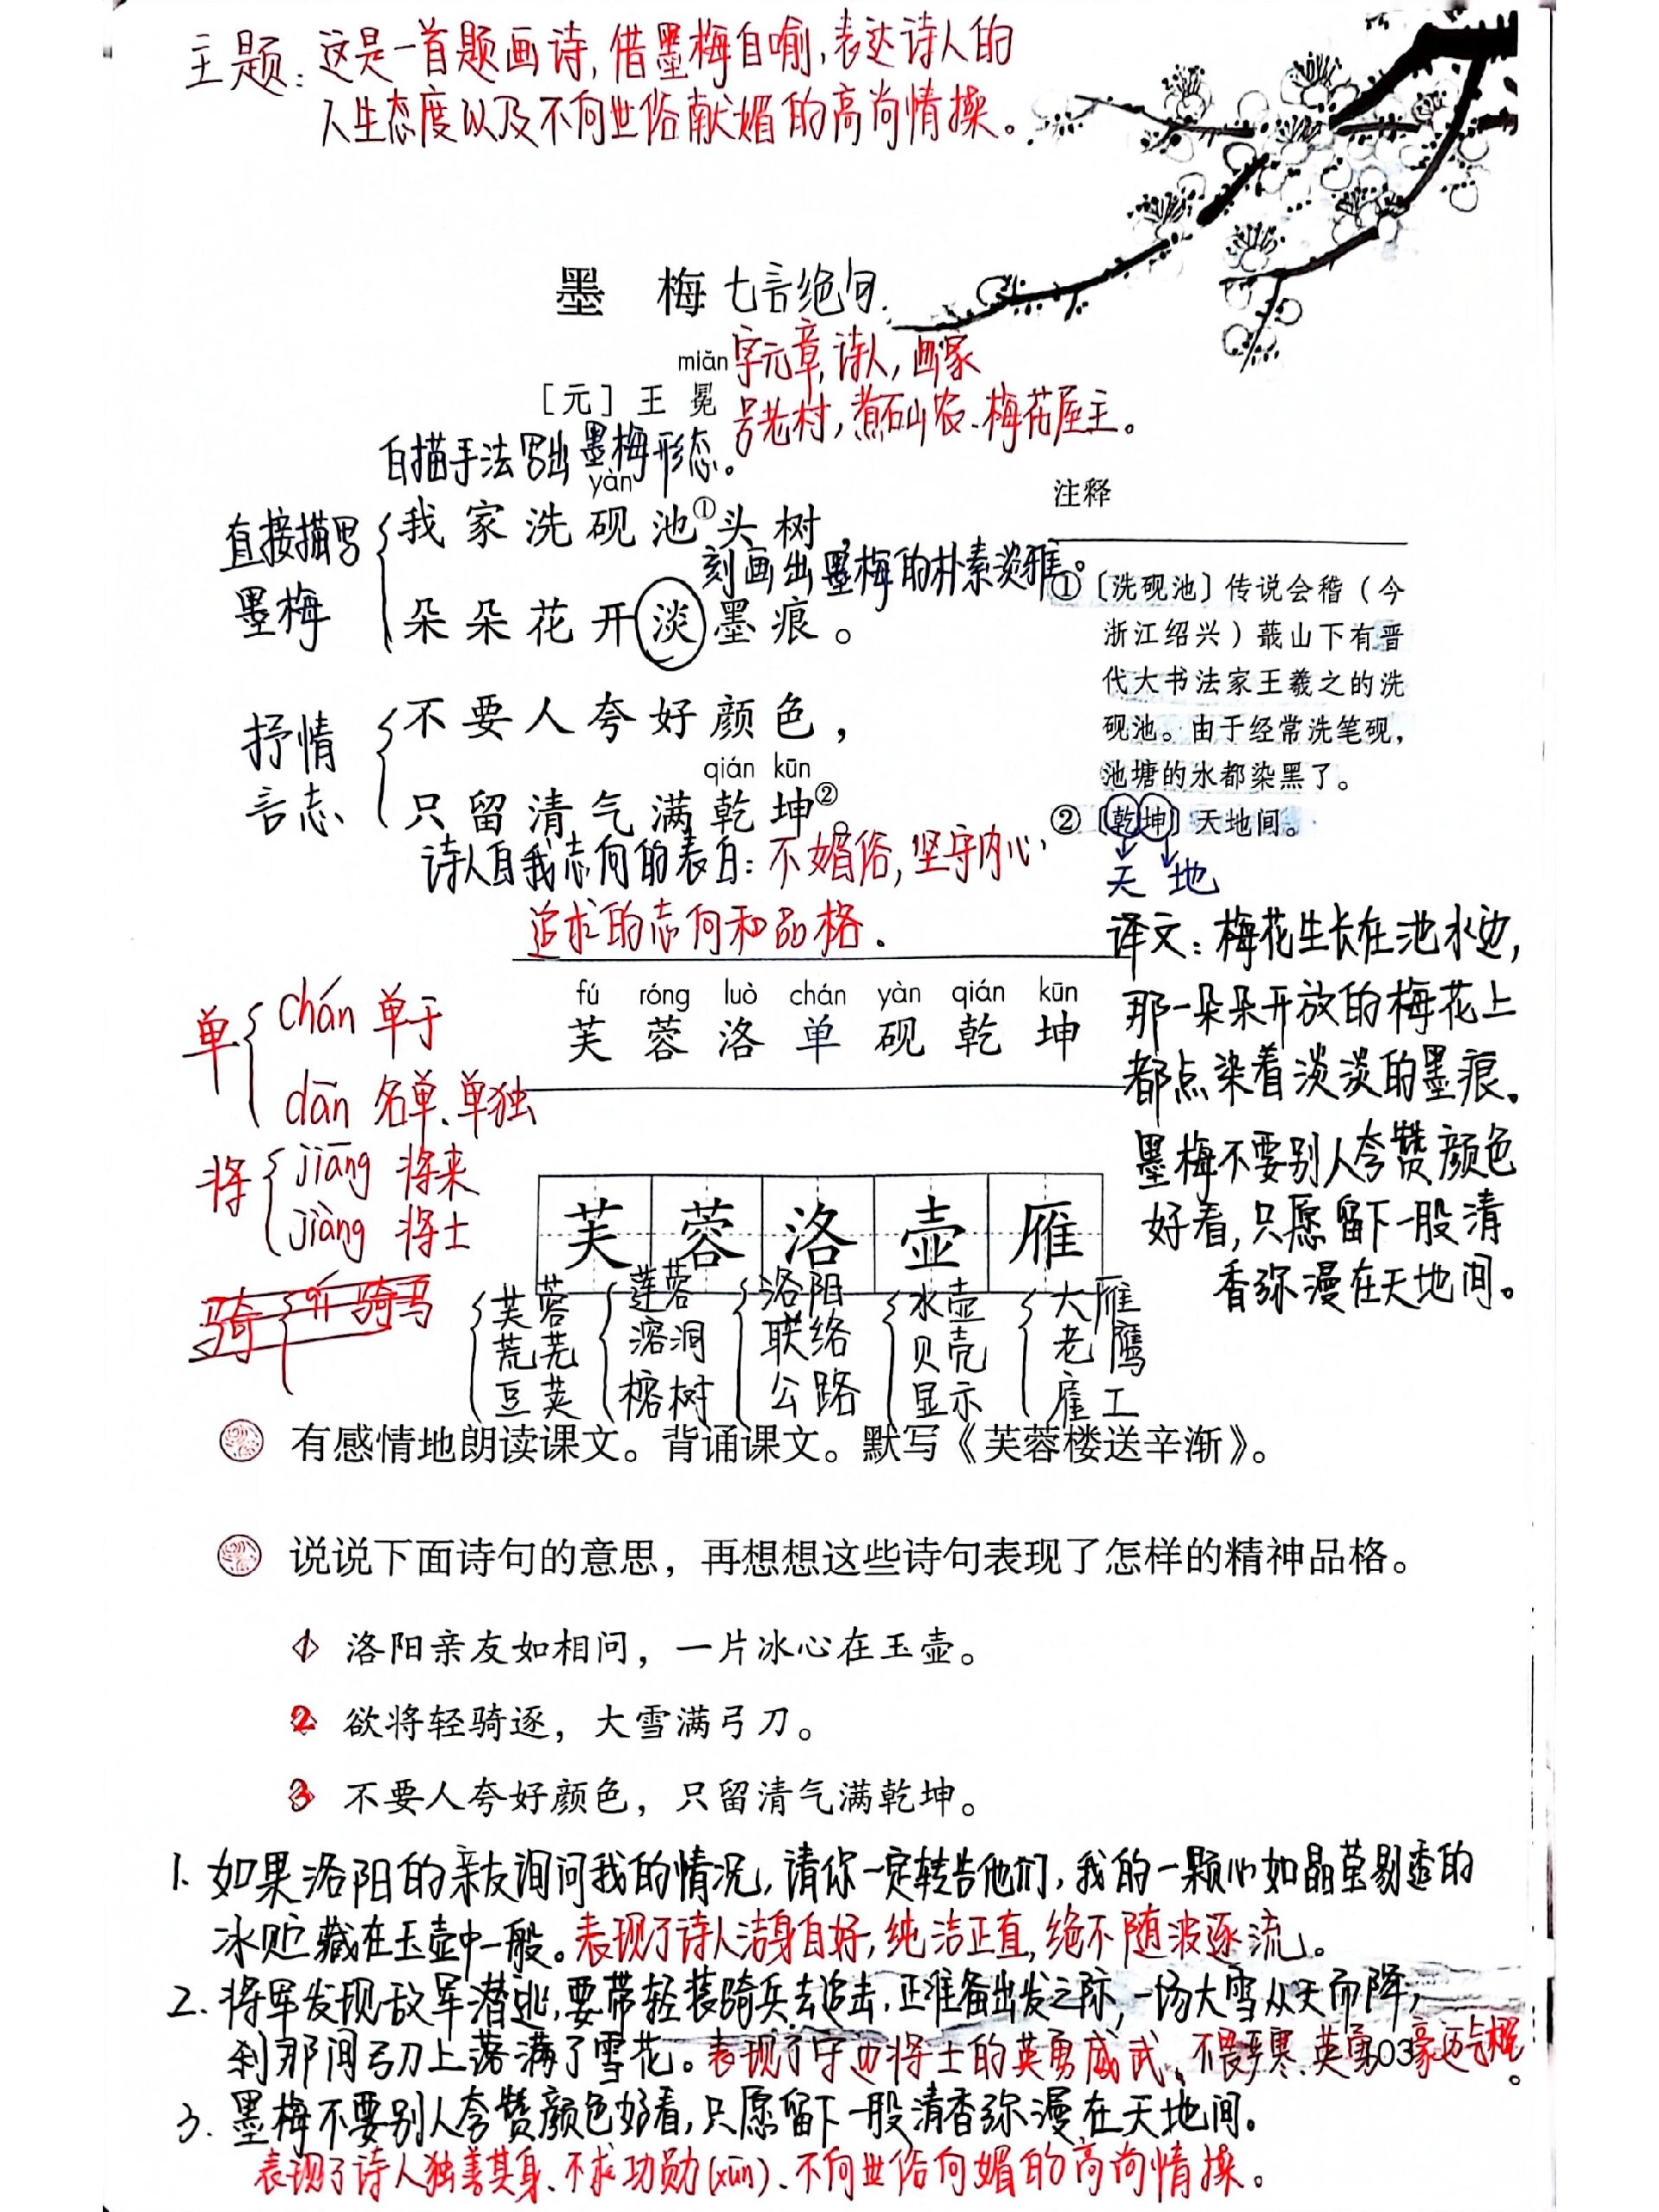 主题：这是一首题画诗，借墨梅自喻，表达诗人的
人生态度以及不向世俗献媚的高尚情操。
墨 梅 七言绝句.
miǎn 字元章，诗人，画家
［元］王 冕
号老村，煮石山农、梅花屋主。
白描手法写出墨梅形态。
yàn
直接描写
墨梅
我家洗砚池①头树，
刻画出墨梅的朴素淡雅。
朵朵花开淡墨痕。
抒情
言志
不要人夸好颜色，
qián kūn
只留清气满乾坤②。
诗人自我志向的表白：不媚俗，坚守内心
追求的志向和品格.
注释
①〔洗砚池〕传说会稽（今
浙江绍兴）蕺山下有晋
代大书法家王羲之的洗
砚池。由于经常洗笔砚，
池塘的水都染黑了。
②〔乾坤〕天地间。
天 地
译文：梅花生长在池水边，
那一朵朵开放的梅花上
都点染着淡淡的墨痕。
墨梅不要别人夸赞颜色
好看，只愿留下一股清
香弥漫在天地间。
fú róng luò chán yàn qián kūn
芙 蓉 洛 单 砚 乾 坤
单
chán 单于
dān 名单、单独
将
jiāng 将来
jiàng 将士
骑
qí 骑马
芙 蓉 洛 壶 雁
芙蓉 莲蓉 洛阳 水壶 大雁
荒芜 溶洞 联络 贝壳 老鹰
豆荚 榕树 公路 显示 雇工
有感情地朗读课文。背诵课文。默写《芙蓉楼送辛渐》。
说说下面诗句的意思，再想想这些诗句表现了怎样的精神品格。
1 洛阳亲友如相问，一片冰心在玉壶。
2 欲将轻骑逐，大雪满弓刀。
3 不要人夸好颜色，只留清气满乾坤。
1. 如果洛阳的亲友询问我的情况，请你一定转告他们，我的一颗心如晶莹剔透的
冰贮藏在玉壶中一般。表现了诗人洁身自好，纯洁正直，绝不随波逐流。
2. 将军发现敌军潜逃，要带轻装骑兵去追击，正准备出发之际，一场大雪从天而降，
刹那间弓刀上落满了雪花。表现了守边将士的英勇威武、不畏严寒、英勇豪迈气概。
103
3. 墨梅不要别人夸赞颜色好看，只愿留下一股清香弥漫在天地间。
表现了诗人独善其身、不求功勋(xūn)、不向世俗向媚的高尚情操。